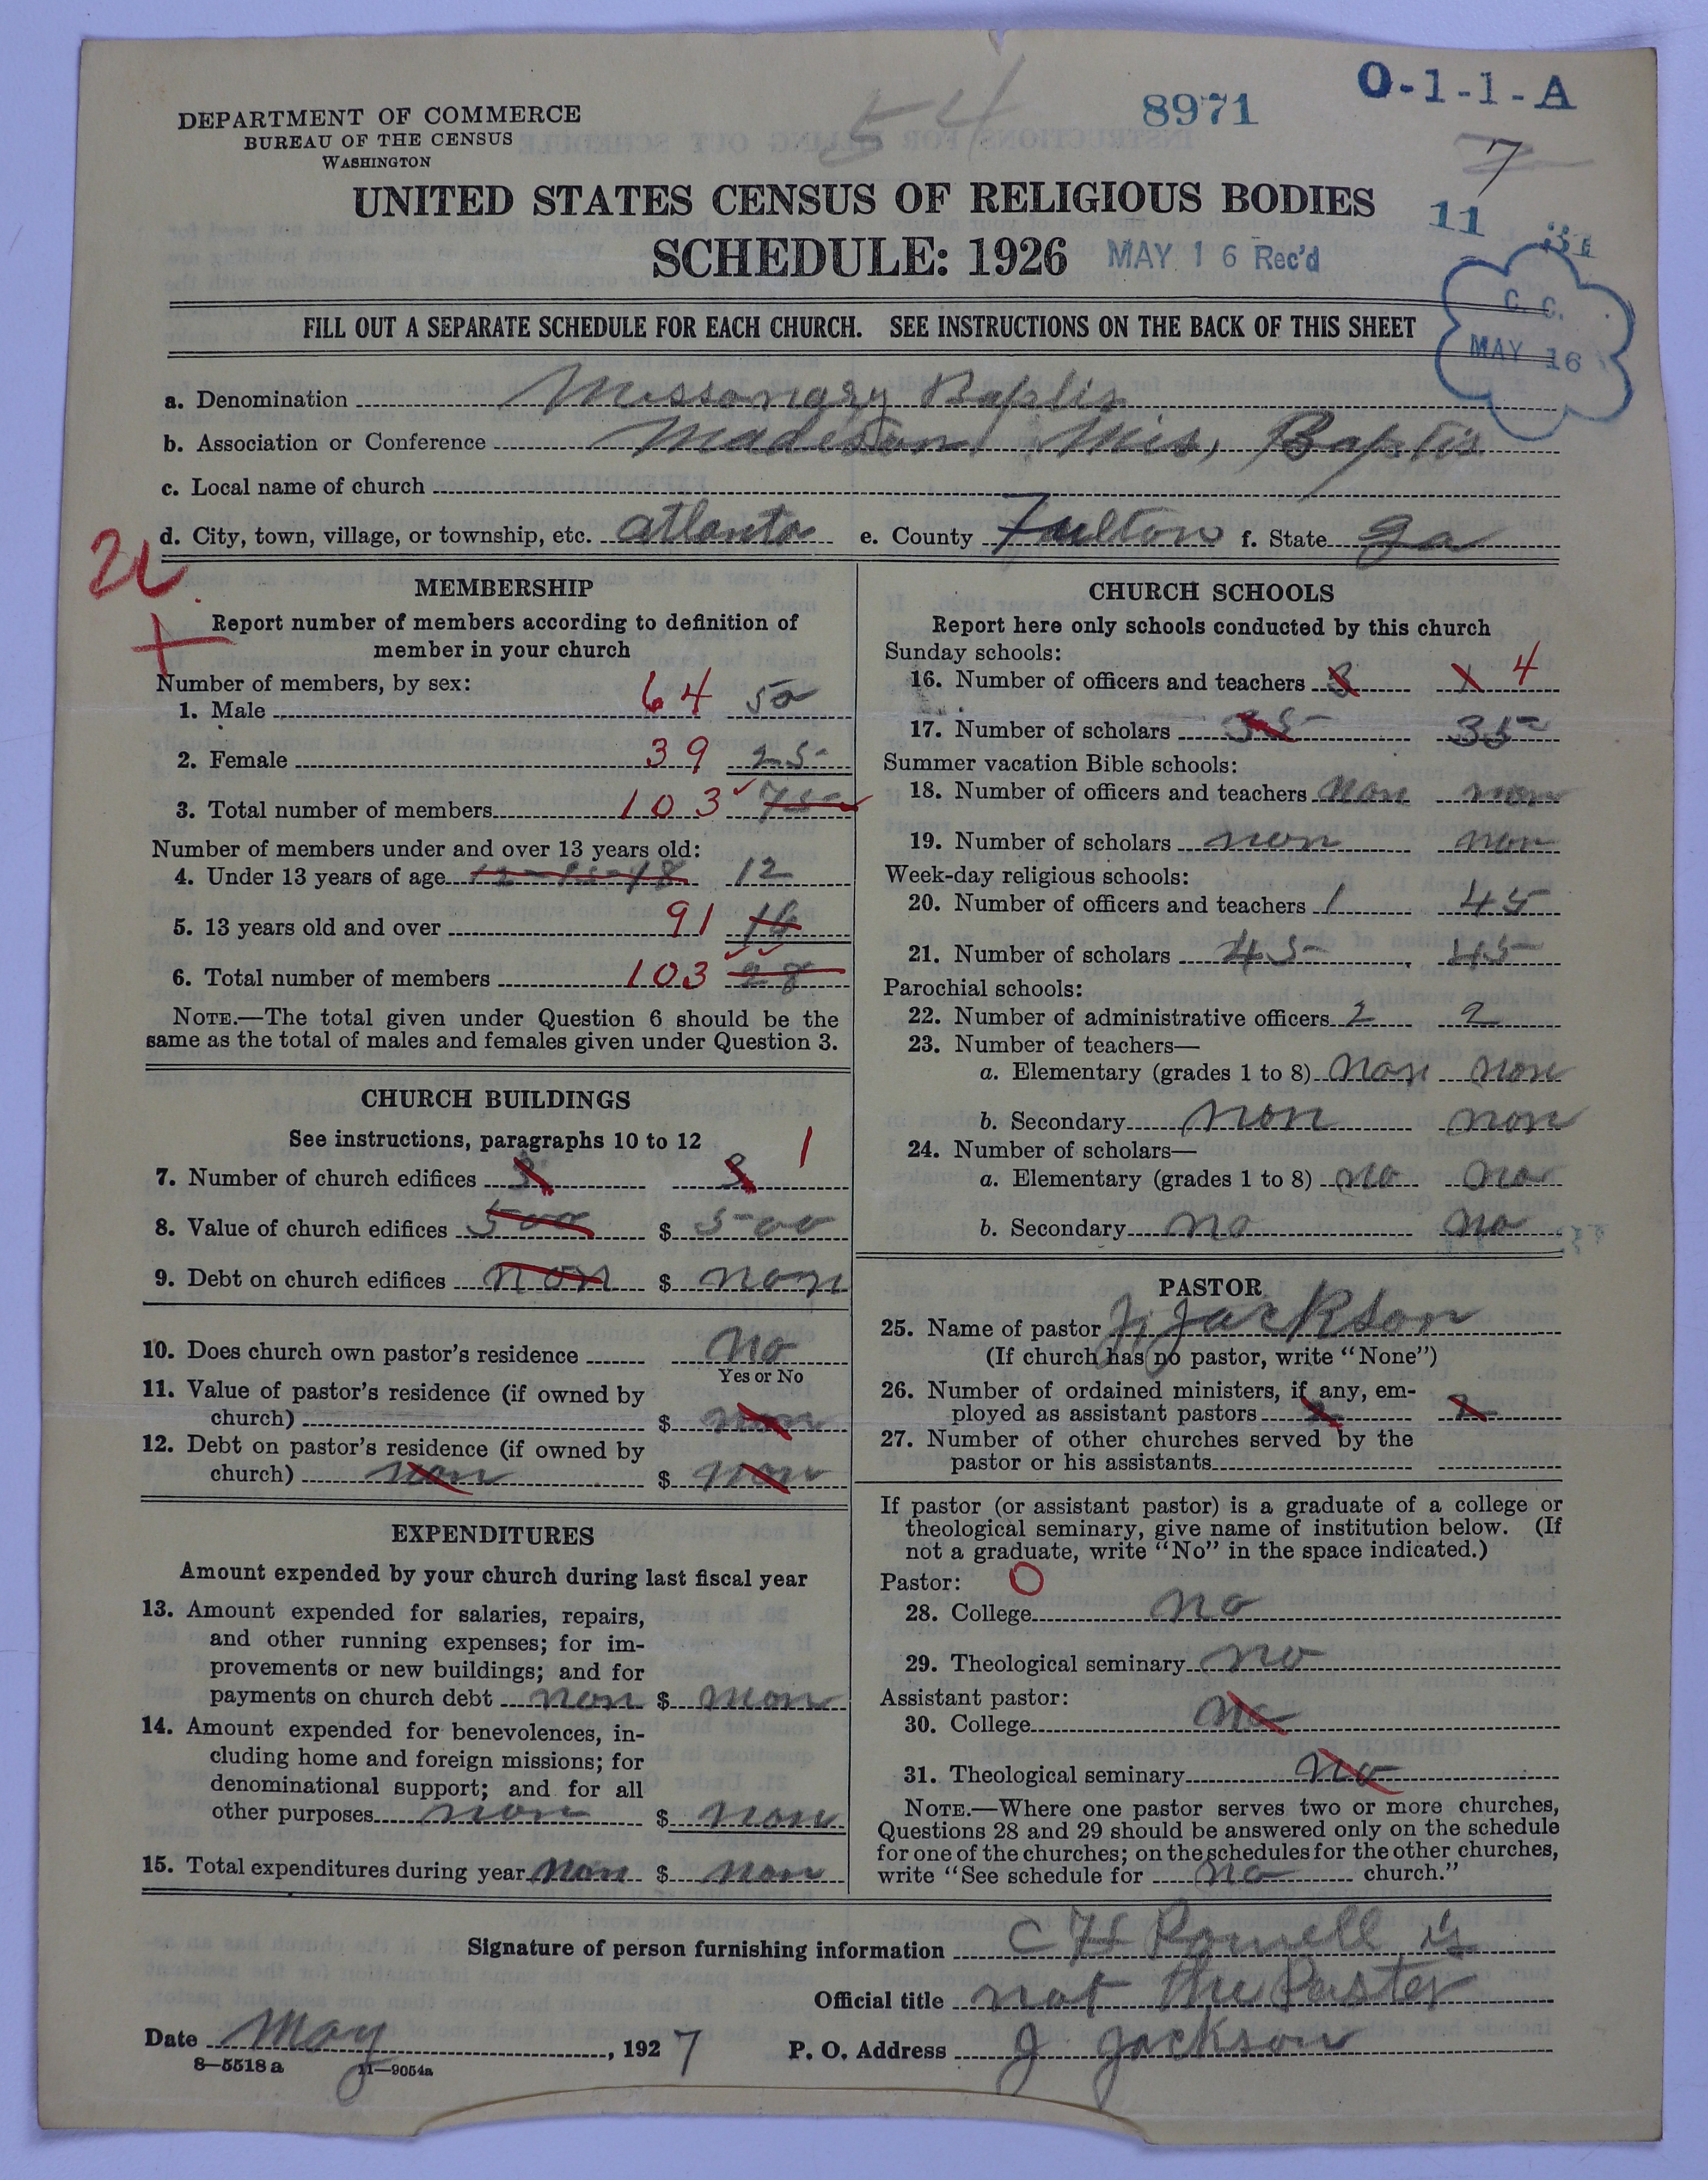 54
8971
O-1-1-A
DEPARTMENT OF COMMERCE
BUREAU OF THE CENSUS
WASHINGTON
7
UNITED STATES CENSUS OF RELIGIOUS BODIES
11 31
SCHEDULE: 1926 MAY 16 Rec'd
C. C.
MAY 16
FILL OUT A SEPARATE SCHEDULE FOR EACH CHURCH. SEE INSTRUCTIONS ON THE BACK OF THIS SHEET
a. Denomination Missonary Baptis
b. Association or Conference Madison Mis, Baptis
c. Local name of church
d. City, town, village, or township, etc. atlanta e. County Fulton f. State Ga
MEMBERSHIP
Report number of members according to definition of
member in your church
Number of members, by sex:
1. Male 64 50
2. Female 39 25
3. Total number of members 103 75
Number of members under and over 13 years old:
4. Under 13 years of age 12
5. 13 years old and over 91 16
6. Total number of members 103 28
NOTE.—The total given under Question 6 should be the
same as the total of males and females given under Question 3.
CHURCH BUILDINGS
See instructions, paragraphs 10 to 12
7. Number of church edifices 3 3 1
8. Value of church edifices 500 $ 500
9. Debt on church edifices non $ non
10. Does church own pastor's residence No
Yes or No
11. Value of pastor's residence (if owned by
church) $ non
12. Debt on pastor's residence (if owned by
church) non $ non
EXPENDITURES
Amount expended by your church during last fiscal year
13. Amount expended for salaries, repairs,
and other running expenses; for im-
provements or new buildings; and for
payments on church debt non $ non
14. Amount expended for benevolences, in-
cluding home and foreign missions; for
denominational support; and for all
other purposes non $ non
15. Total expenditures during year non $ non
CHURCH SCHOOLS
Report here only schools conducted by this church
Sunday schools:
16. Number of officers and teachers 3 1 4
17. Number of scholars 35 35
Summer vacation Bible schools:
18. Number of officers and teachers non non
19. Number of scholars non non
Week-day religious schools:
20. Number of officers and teachers 1 45
21. Number of scholars 45 45
Parochial schools:
22. Number of administrative officers 2 2
23. Number of teachers—
a. Elementary (grades 1 to 8) non non
b. Secondary non non
24. Number of scholars—
a. Elementary (grades 1 to 8) no no
b. Secondary no no
PASTOR
25. Name of pastor J, Jackson
(If church has no pastor, write "None")
26. Number of ordained ministers, if any, em-
ployed as assistant pastors 2 2
27. Number of other churches served by the
pastor or his assistants
If pastor (or assistant pastor) is a graduate of a college or
theological seminary, give name of institution below. (If
not a graduate, write "No" in the space indicated.)
Pastor: O
28. College no
29. Theological seminary no
Assistant pastor:
30. College no
31. Theological seminary no
NOTE.—Where one pastor serves two or more churches,
Questions 28 and 29 should be answered only on the schedule
for one of the churches; on the schedules for the other churches,
write "See schedule for no church."
Signature of person furnishing information C H Powell is
Official title not the Paster
Date May, 1927 P. O. Address J Jackson
8—5518 a 11—9054a